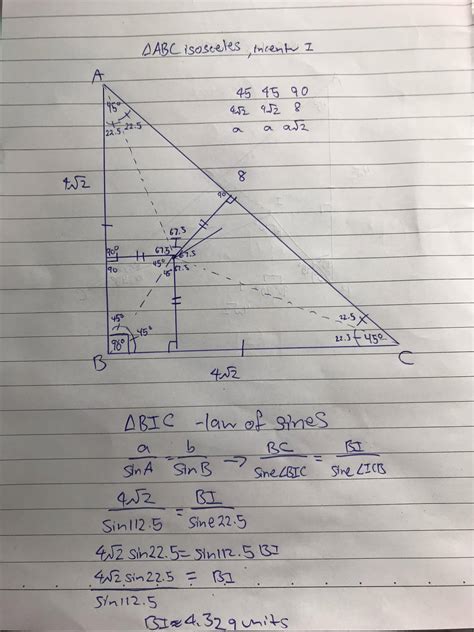 △ABC isosceles, incenter I
A
45 45 90
4√2 4√2 8
a a a√2
45°
22.5 22.5
8
4√2
90
67.5
I
90°
67.5
67.5
90
45°
45
67.5
45°
45°
90°
22.5
22.5
45°
B
C
4√2
△BIC - law of sines
a/sinA = b/sinB → BC/sine∠BIC = BI/sine∠ICB
4√2/sin112.5 = BI/sine22.5
4√2 sin22.5 = sin112.5 BI
4√2 sin22.5/sin112.5 = BI
BI≈4.329 units